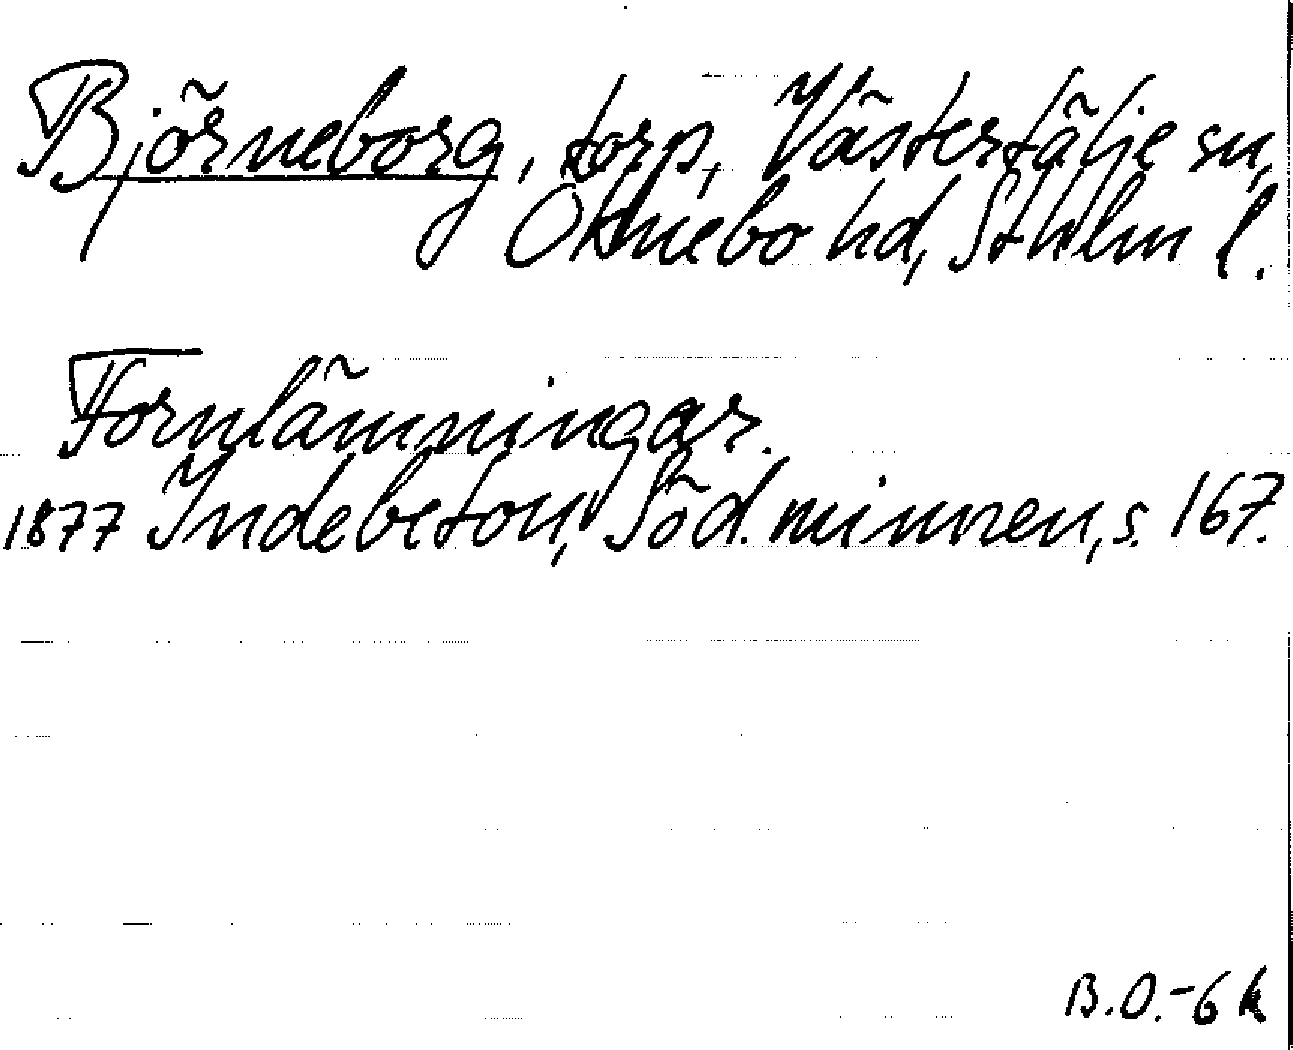 Björneborg, torp, Västertälje sn,
Öknebo hd, Sthlm l.
Fornlämningar.
1877 Indebetou, Söd. minnen, s. 167.
B.O.-6 k